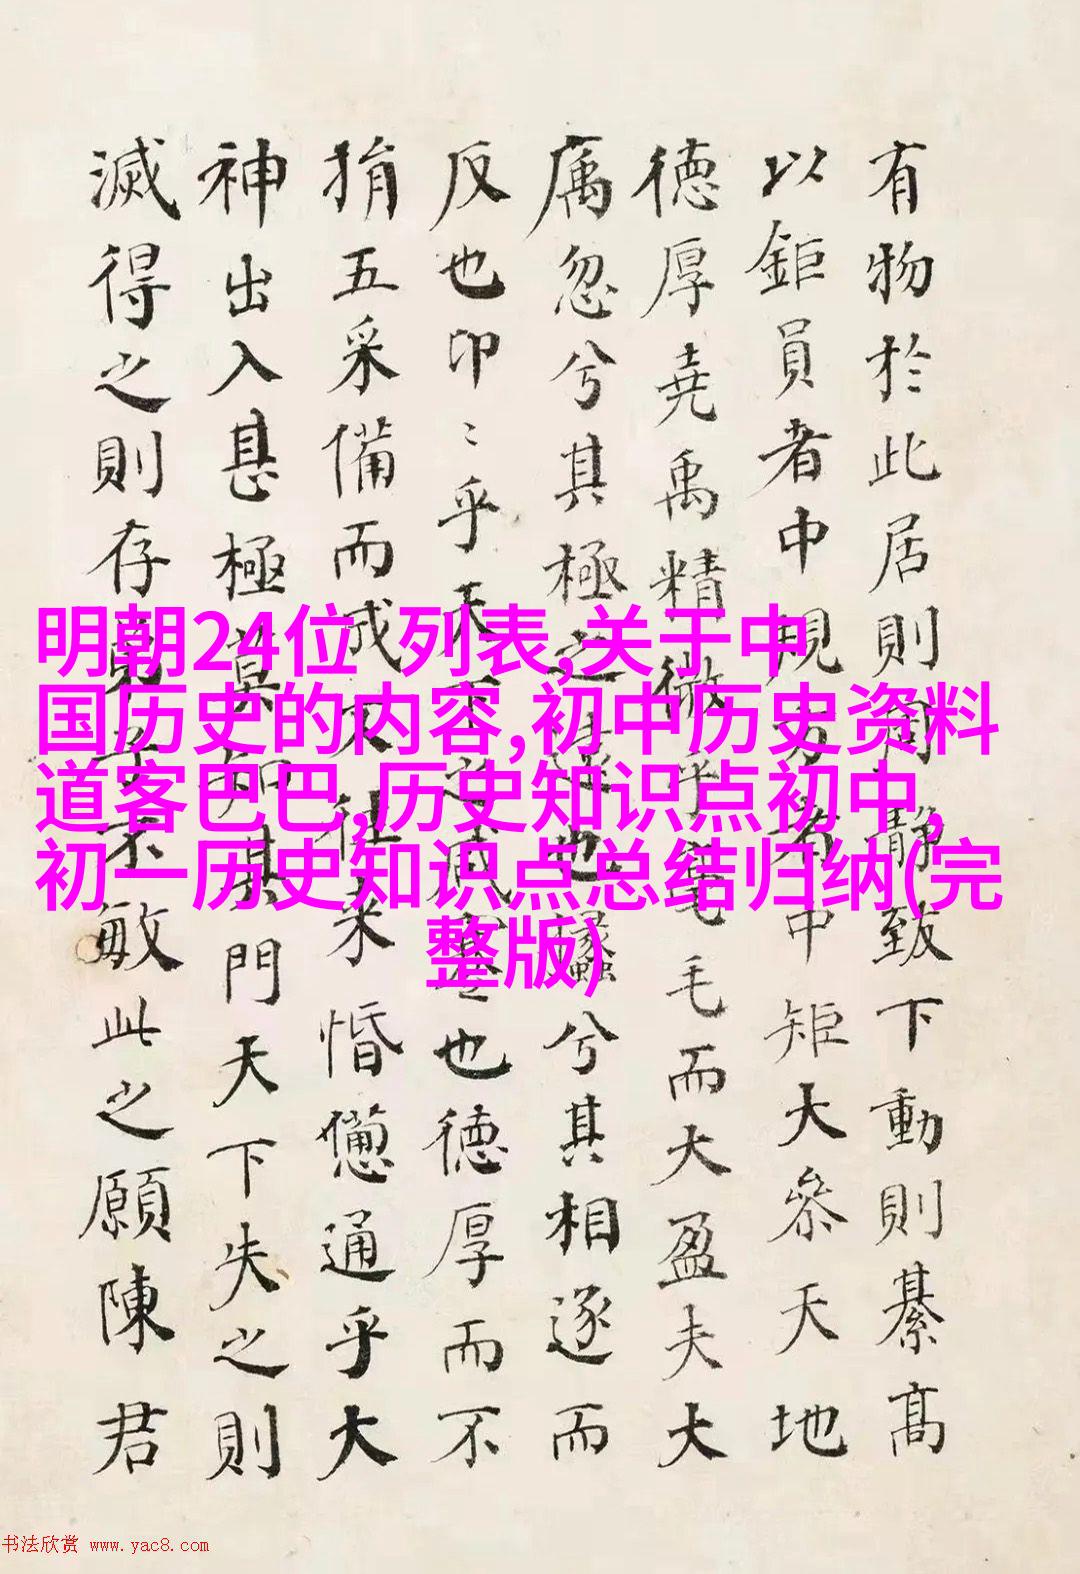 有物於此居則周静致下動則綦高
以鉅員者中規方者中矩大參天地
德厚堯禹精微乎毫毛而大盈夫大
厲忽兮其極之遠也攭兮其相逐而
反也卬〻乎天下之咸蹇也德厚而不
捐五采備而成文往来惛憊通乎大
神出入甚極莫知其門天下失之則
滅得之則存弟子不敏此之願陳君
明朝24位 列表,关于中
国历史的内容,初中历史资料
道客巴巴,历史知识点初中,
初一历史知识点总结归纳(完
整版)
书法欣赏 www.yac8.com